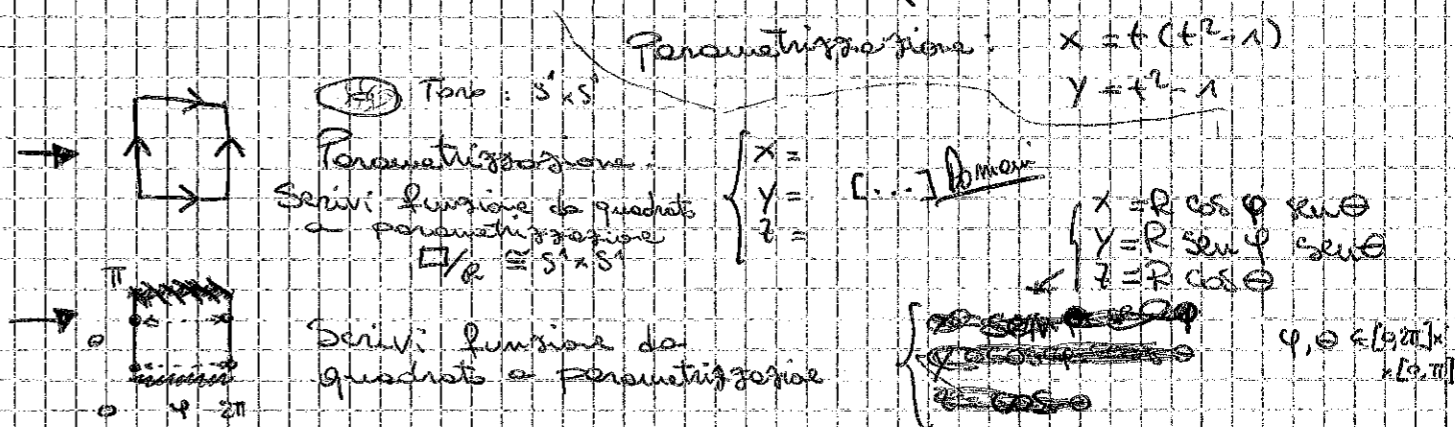 Parametrizzazione: x = t(t²-1)
y = t²-1
Toro: S¹×S¹
Parametrizzazione:
Scrivi funzione da quadrato
a parametrizzazione
□/R ≅ S¹×S¹
x =
y = [...] Domani
z =
x = R cos φ sen θ
y = R sen φ sen θ
z = R cos θ
π
θ
0 φ 2π
Scrivi funzione da
quadrato a parametrizzazione
φ, θ ∈ [0,2π]×
×[0,π]